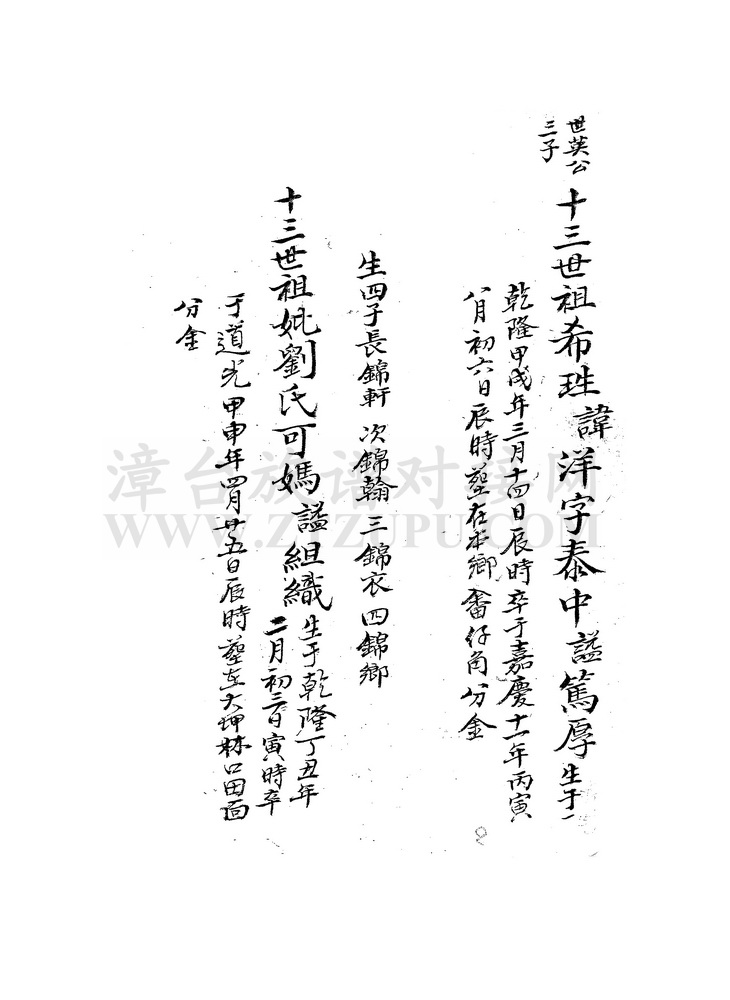 世英公
三子
十三世祖希珄諱洋字泰中謚篤厚生于
乾隆甲戌年三月十四日辰時卒于嘉慶十一年丙寅
八月初六日辰時塟在本鄉畬仔角分金
生四子長錦軒次錦翰三錦衣四錦鄉
十三世祖妣劉氏可媽謚組織生于乾隆丁丑年
二月初三日寅時卒
于道光甲申年四月廿五日辰時塟在大坪林口田面
分金
漳台族谱对接网
WWW.ZTZUPU.COM